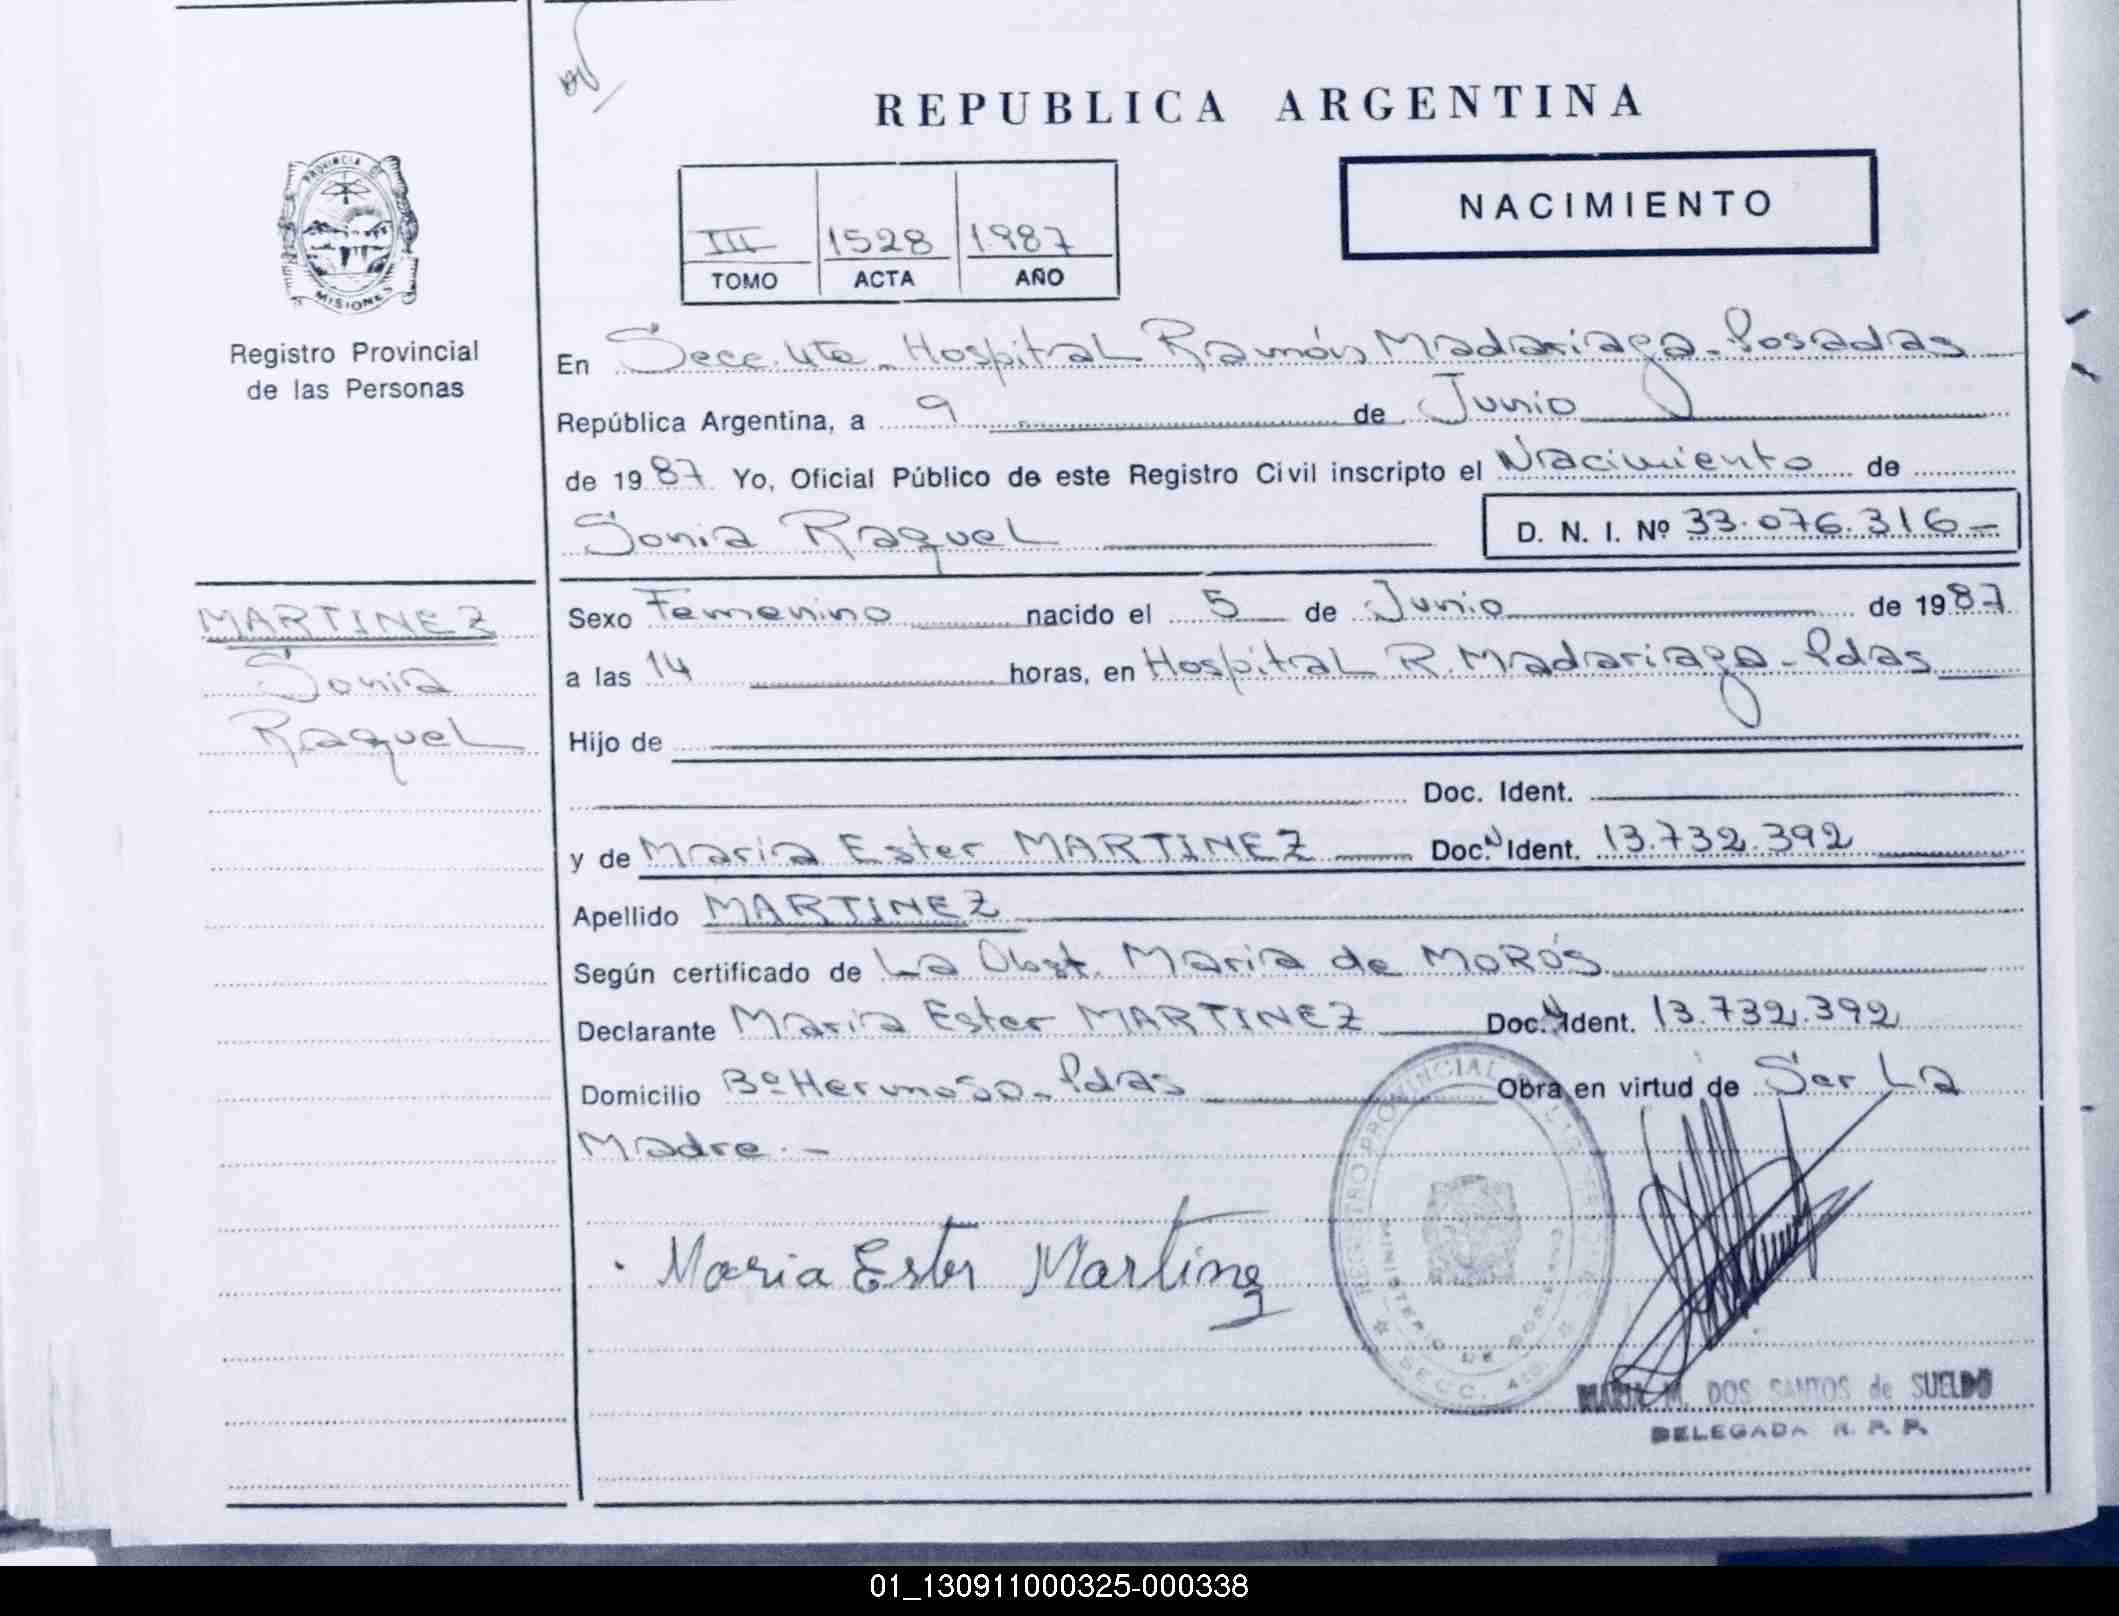 REPUBLICA ARGENTINA
PROVINCIA DE
MISIONES
Registro Provincial
de las Personas
NACIMIENTO
III 1528 1987
TOMO ACTA AÑO
En Secc. 4ta - Hospital Ramón Madariaga - Posadas
República Argentina, a 9 de Junio
de 1987 Yo, Oficial Público de este Registro Civil inscripto el Nacimiento de
Sonia Raquel D. N. I. Nº 33.076.316-
MARTINEZ
Sonia
Raquel
Sexo Femenino nacido el 5 de Junio de 1987
a las 14 horas, en Hospital R. Madariaga - Pdas
Hijo de
Doc. Ident.
y de Maria Ester MARTINEZ Doc. Ident. 13.732.392
Apellido MARTINEZ
Según certificado de La Obst. Maria de MoRós
Declarante Maria Ester MARTINEZ Doc. Ident. 13.732.392
Domicilio Bº Hermoso - Pdas Obra en virtud de Ser La
Madre.-
Maria Ester Martinez
REGISTRO PROVINCIAL DE LAS PERSONAS
MINISTERIO DE GOBIERNO
SECC. 4ta.
MARIA M. DOS SANTOS de SUELDO
DELEGADA R. P. P.
01_130911000325-000338